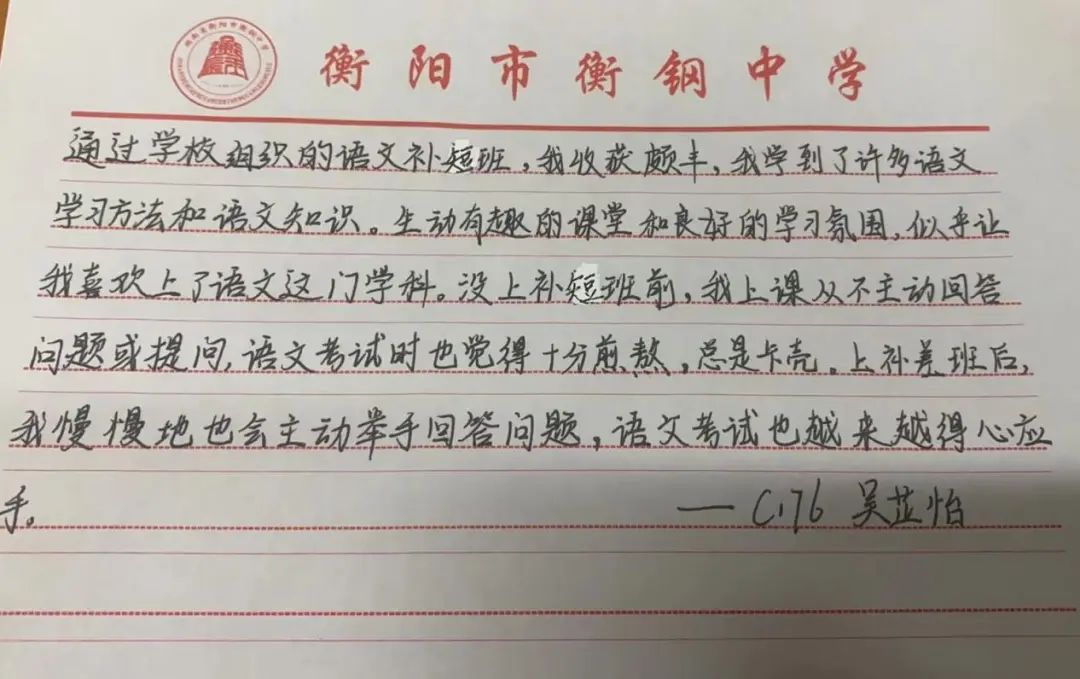 衡阳市衡钢中学
通过学校组织的语文补短班，我收获颇丰，我学到了许多语文
学习方法和语文知识。生动有趣的课堂和良好的学习氛围，似乎让
我喜欢上了语文这门学科。没上补短班前，我上课从不主动回答
问题或提问，语文考试时也觉得十分煎熬，总是卡壳。上补差班后，
我慢慢地也会主动举手回答问题，语文考试也越来越得心应
手。
——C176 吴芷怡